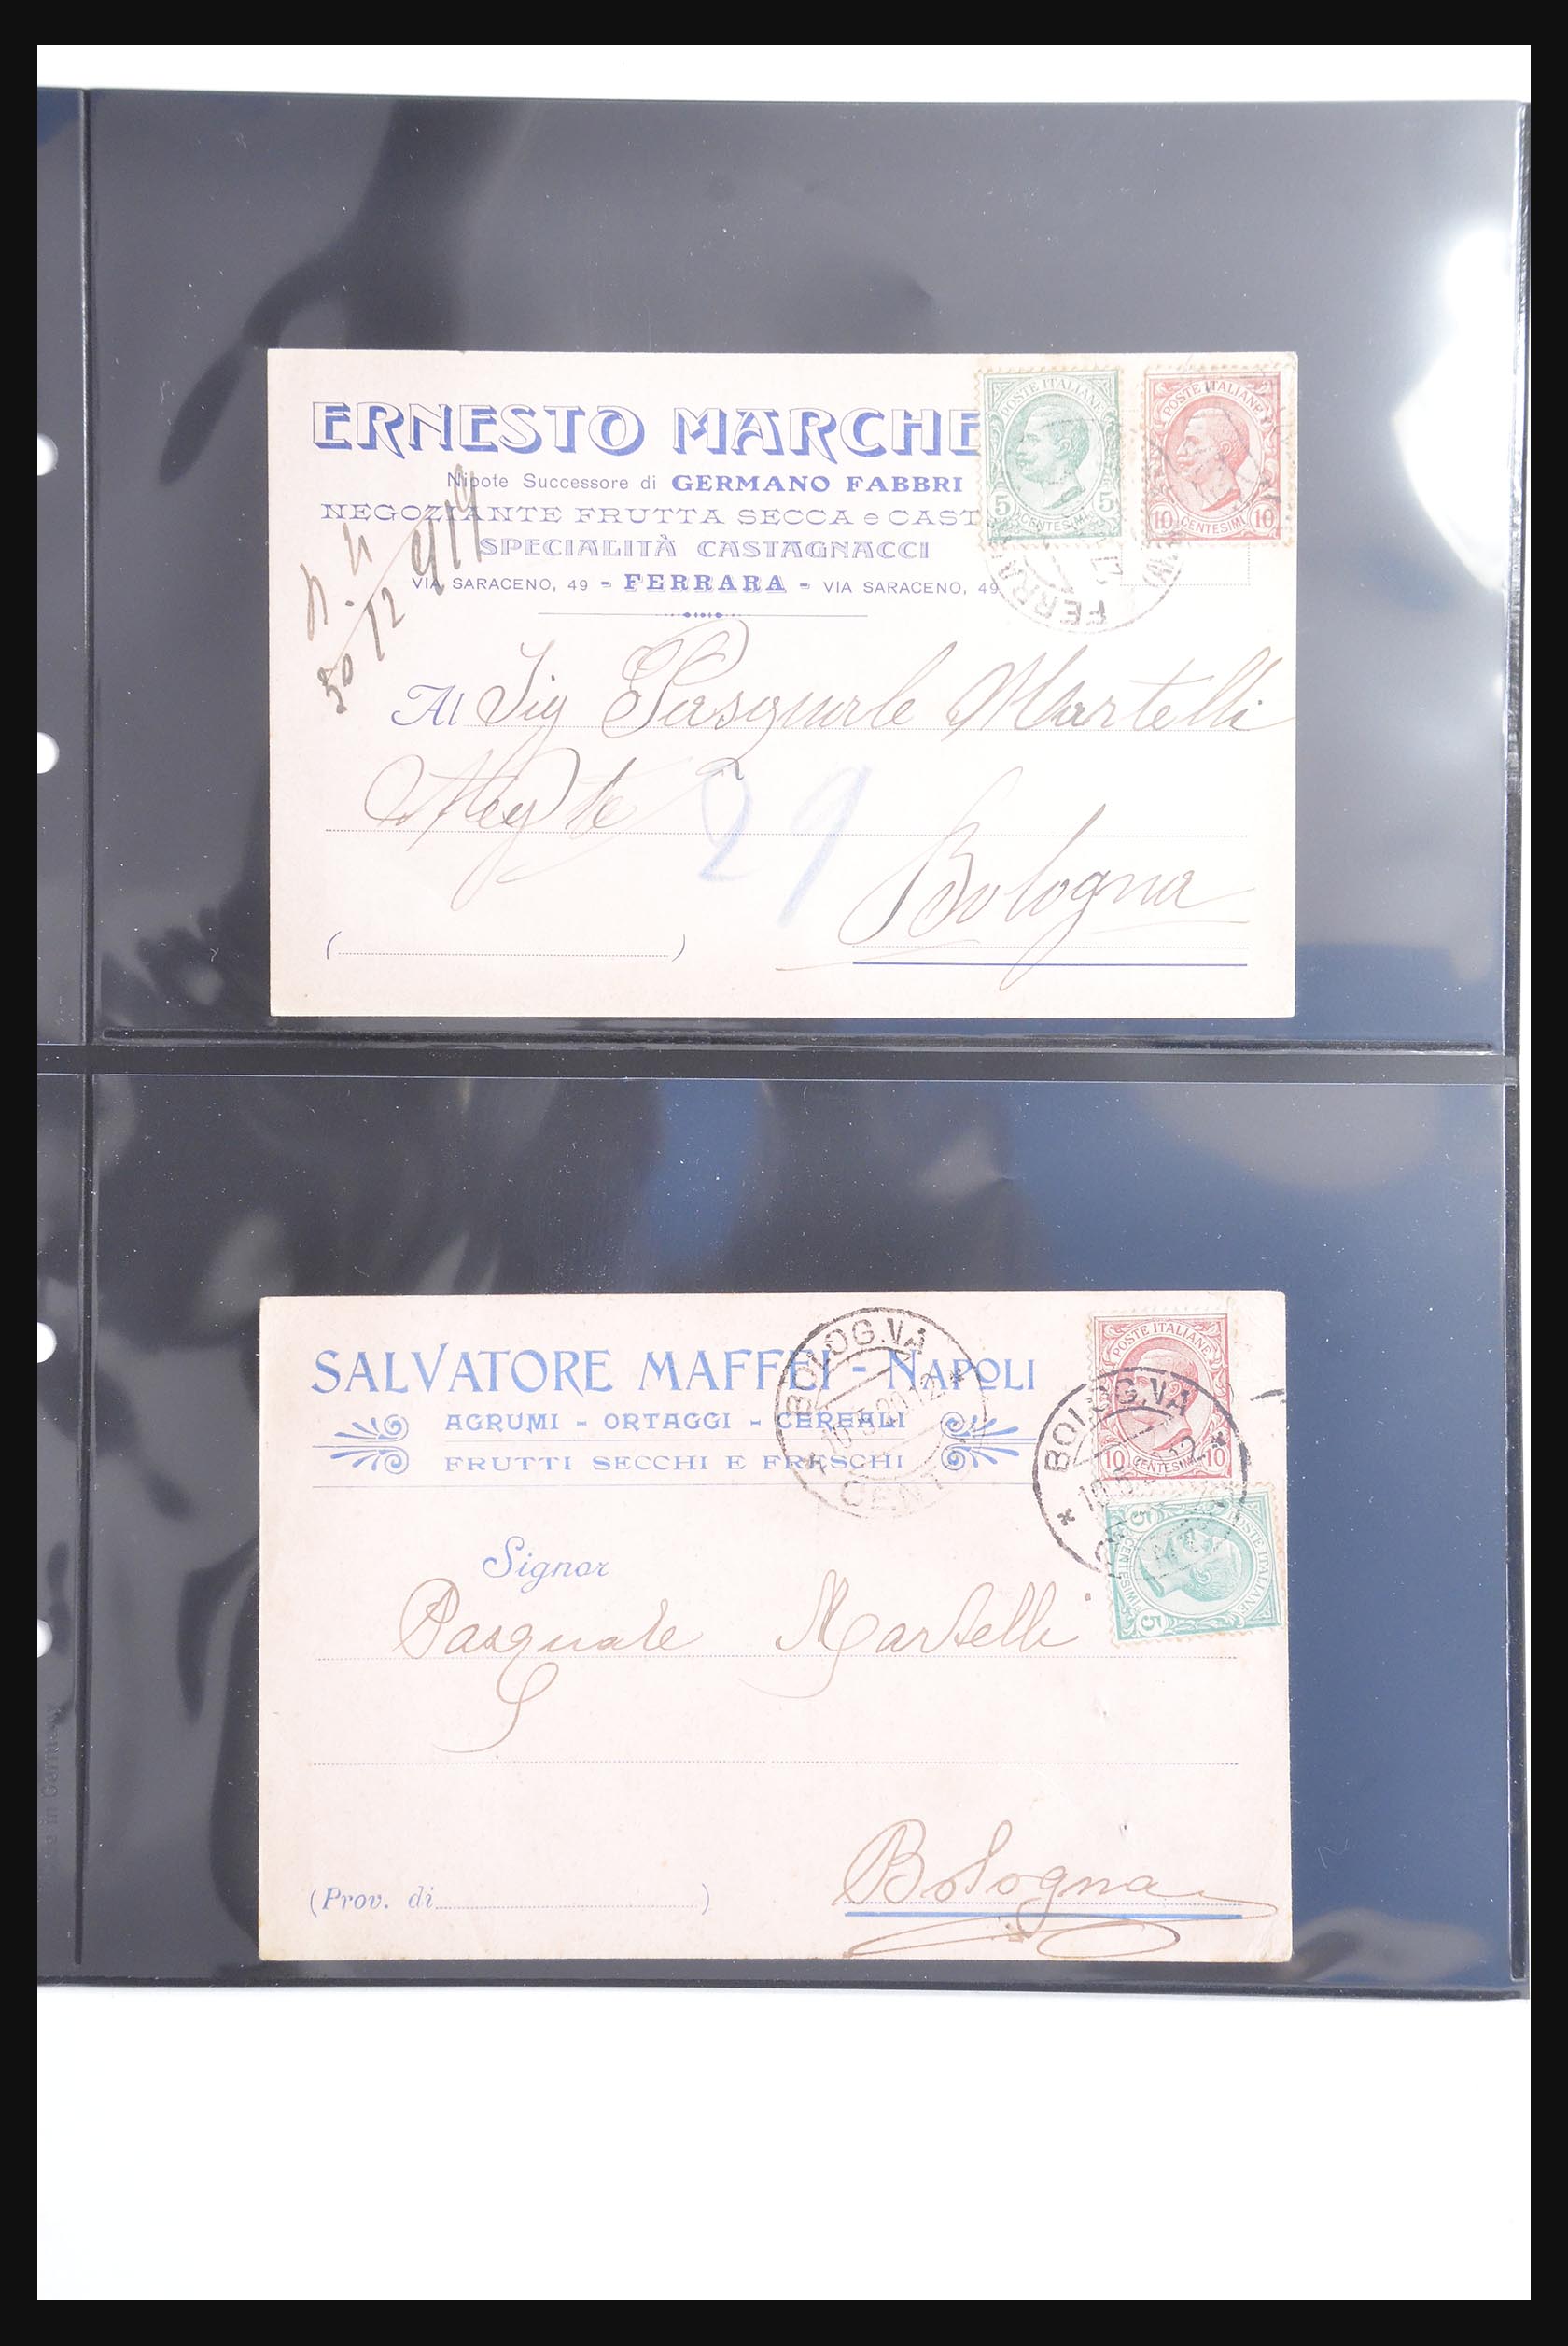 ERNESTO MARCHE
Nipote Successore di GERMANO FABBRI
NEGOZIANTE FRUTTA SECCA e CAST
SPECIALITÀ CASTAGNACCI
VIA SARACENO, 49 - FERRARA - VIA SARACENO, 49
POSTE ITALIANE
5 CENTESIMI 5
POSTE ITALIANE
10 CENTESIMI 10
Al Sig Pasquale Martelli
29
Bologna
( )
SALVATORE MAFFEI - NAPOLI
AGRUMI - ORTAGGI - CEREALI
FRUTTI SECCHI E FRESCHI
BOLOGNA
10.5.20.12
CENTRO
POSTE ITALIANE
10 CENTESIMI 10
BOLOGNA
POSTE ITALIANE
5 CENTESIMI 5
Signor
Pasquale Martelli
Bologna
(Prov. di )